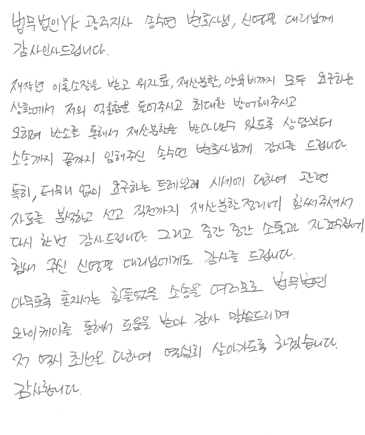 법무법인YK 광주지사 송수연 변호사님, 신영필 대리님께
감사인사드립니다.
재작년 이혼소장을 받고 위자료, 재산분할, 양육비까지 모두 요구하는
상황에서 저의 억울함을 들어주시고 최대한 방어해주시고
오히려 반소를 통해서 재산분할을 받아낼수 있도록 상담부터
소송까지 끝까지 임해주신 송수연 변호사님께 감사를 드립니다
특히, 터무니 없이 요구하는 시세에 대하여 관련
자료를 분석하고 선고 직전까지 재산분할정리에 힘써주셔서
다시 한번 감사드립니다. 그리고 중간 중간 소통과 자료수집에
힘써 주신 신영필 대리님에게도 감사를 드립니다.
아무쪼록 혼자서는 힘들었을 소송을 여러모로 법무법인
와이케이를 통해서 도움을 받아 감사 말씀드리며
저 역시 최선을 다하여 열심히 살아가도록 하겠습니다.
감사합니다.